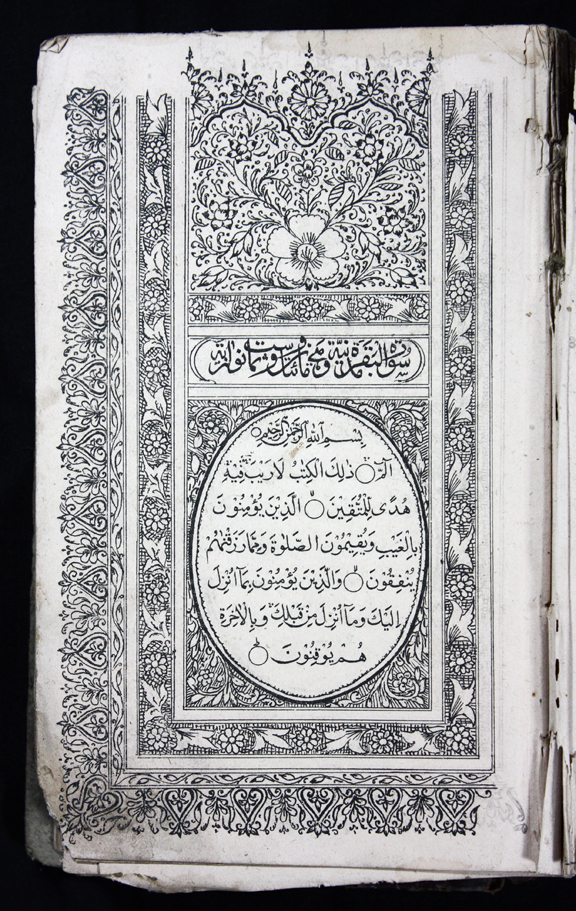 سورة البقرة مدنية وهي مائتان وست وثمانون آية
بِسْمِ اللهِ الرَّحْمٰنِ الرَّحِيْمِ
الٓمّٓ ۝ ذٰلِكَ الْكِتٰبُ لَا رَيْبَ فِيْهِ
هُدًى لِّلْمُتَّقِيْنَ ۝ الَّذِيْنَ يُؤْمِنُوْنَ
بِالْغَيْبِ وَيُقِيْمُوْنَ الصَّلٰوةَ وَمِمَّا رَزَقْنٰهُمْ
يُنْفِقُوْنَ ۝ وَالَّذِيْنَ يُؤْمِنُوْنَ بِمَا اُنْزِلَ
اِلَيْكَ وَمَا اُنْزِلَ مِنْ قَبْلِكَ وَبِالْاٰخِرَةِ
هُمْ يُوْقِنُوْنَ ۝